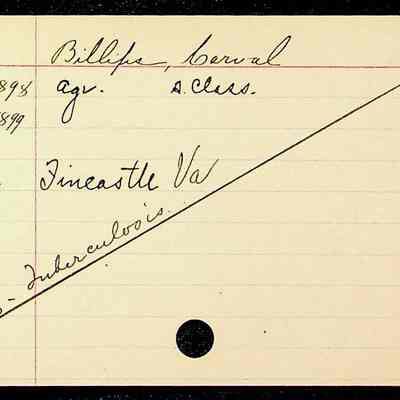 Billips, Corval
898 agr. A. Class.
899
Fincastle Va
- Tuberculosis.